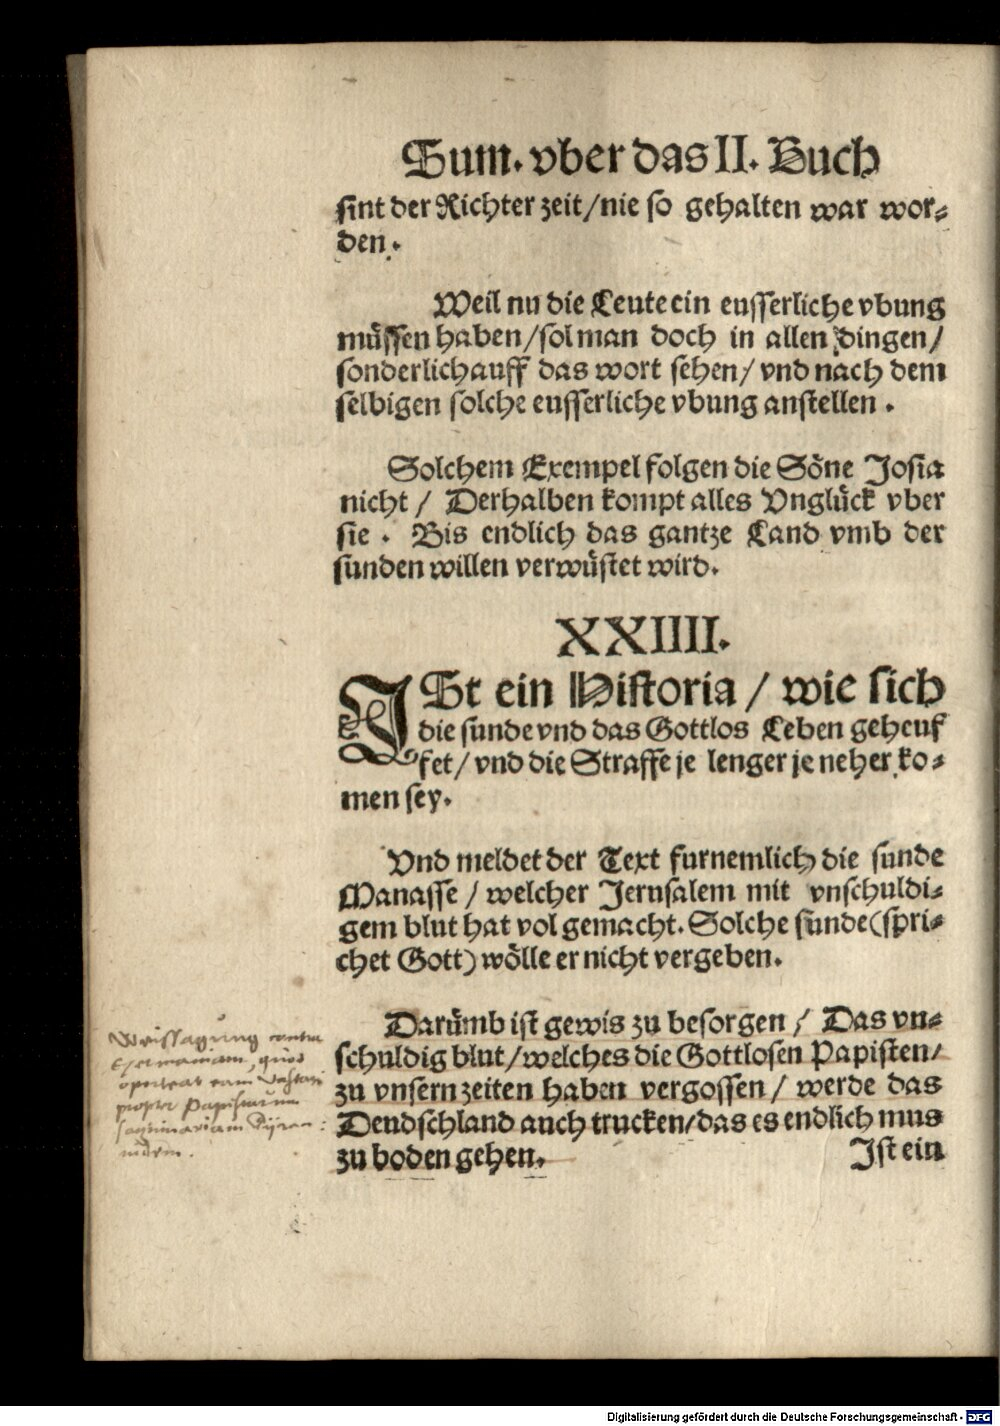 Sum. vber das II. Buch
sint der Richter zeit/nie so gehalten war wor⸗
den.
Weil nu die Leute ein eusserliche vbung
müssen haben/sol man doch in allen dingen/
sonderlich auff das wort sehen/ vnd nach dem
selbigen solche eusserliche vbung anstellen.
Solchem Exempel folgen die Söne Josia
nicht/ Derhalben kompt alles Vnglück vber
sie. Bis endlich das gantze Land vmb der
sunden willen verwüstet wird.
XXIIII.
ISt ein Historia/ wie sich
die sunde vnd das Gottlos Leben geheuf
fet/ vnd die Straffe je lenger je neher ko⸗
men sey.
Vnd meldet der Text furnemlich die sunde
Manasse/ welcher Jerusalem mit vnschuldi⸗
gem blut hat vol gemacht. Solche sunde (spri⸗
chet Gott) wölle er nicht vergeben.
Darümb ist gewis zu besorgen/ Das vn⸗
schuldig blut/welches die Gottlosen Papisten/
zu vnsern zeiten haben vergossen/ werde das
Deudschland auch trucken/das es endlich mus
zu boden gehen.
Ist ein
Weissagung contra
Germaniam, quod
oporteat eam
propter Papistarum
Digitalisierung gefördert durch die Deutsche Forschungsgemeinschaft - DFG